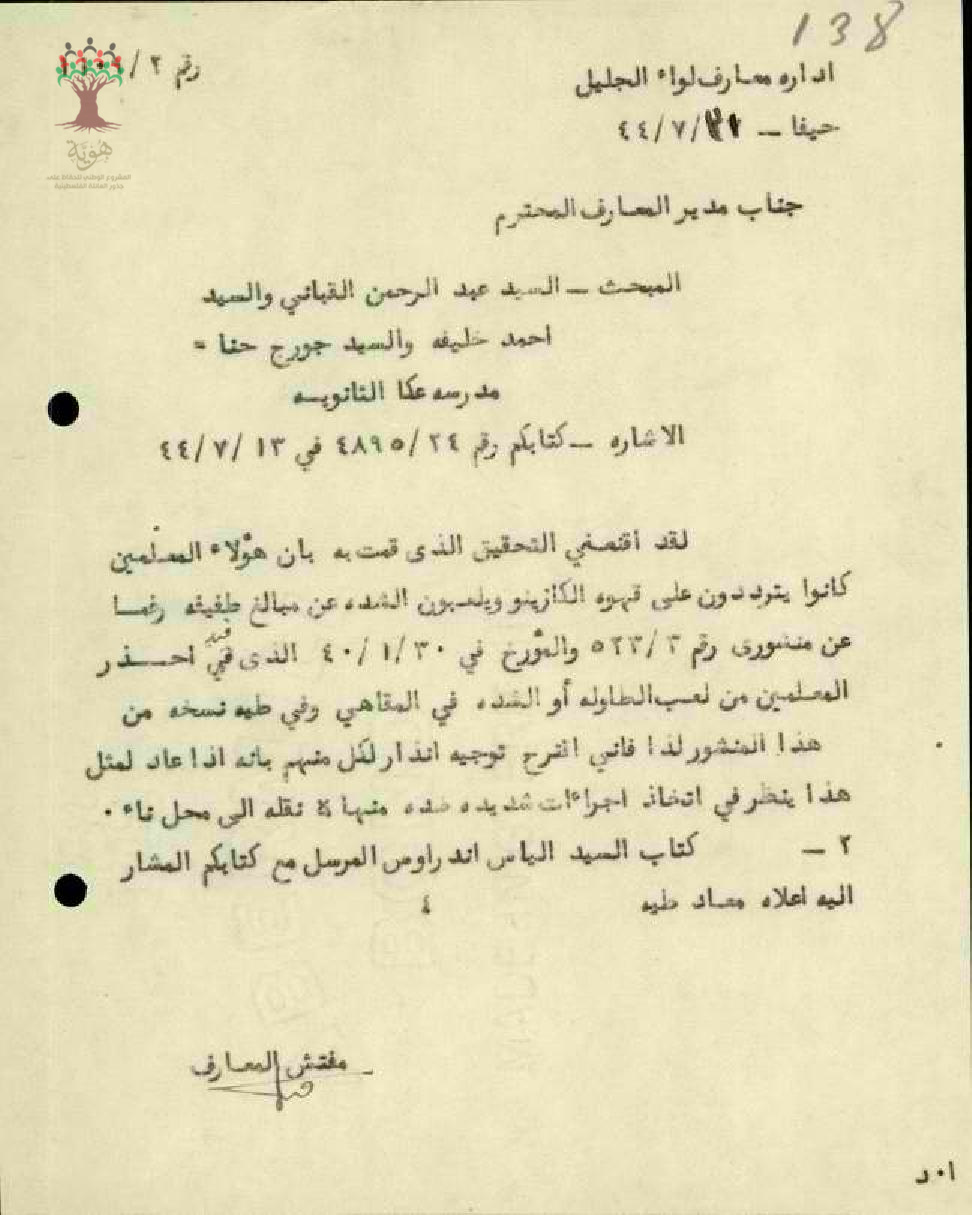 138
رقم ٢/
هُوِيَّة
المشروع الوطني للحفاظ على
جذور العائلة الفلسطينية
اداره معارف لواء الجليل
حيفا — ٤٤/٧/٢١
جناب مدير المعارف المحترم
المبحث — السيد عبد الرحمن القباني والسيد
احمد خليفه والسيد جورج حنا =
مدرسه عكا الثانويـه
الاشاره — كتابكم رقم ٤٨٩٥/٢٤ في ٤٤/٧/١٣
لقد اقتصفي التحقيق الذى قمت به بان هؤلاء المعلمين
كانوا يترددون على قهوه الكازينو ويلعبون الشده عن مبالغ طفيفه رغمـا
عن منشورى رقم ٥٢٣/٣ والمؤرخ في ٤٠/١/٣٠ الذى فيه احــذر
المعلمين من لعب الطاوله أو الشده في المقاهي وفي طيه نسخه من
هذا المنشور لذا فاني اقترح توجيه انذار لكل منهم بانه اذا عاد لمثل
هذا ينظر في اتخاذ اجراءات شديده ضده منها نقله الى محل ناء ٠
٢ — كتاب السيد الياس اندراوس المرسل مع كتابكم المشار
اليه اعلاه معـاد طيه ٤
مفتش المعـارف
ا٠د